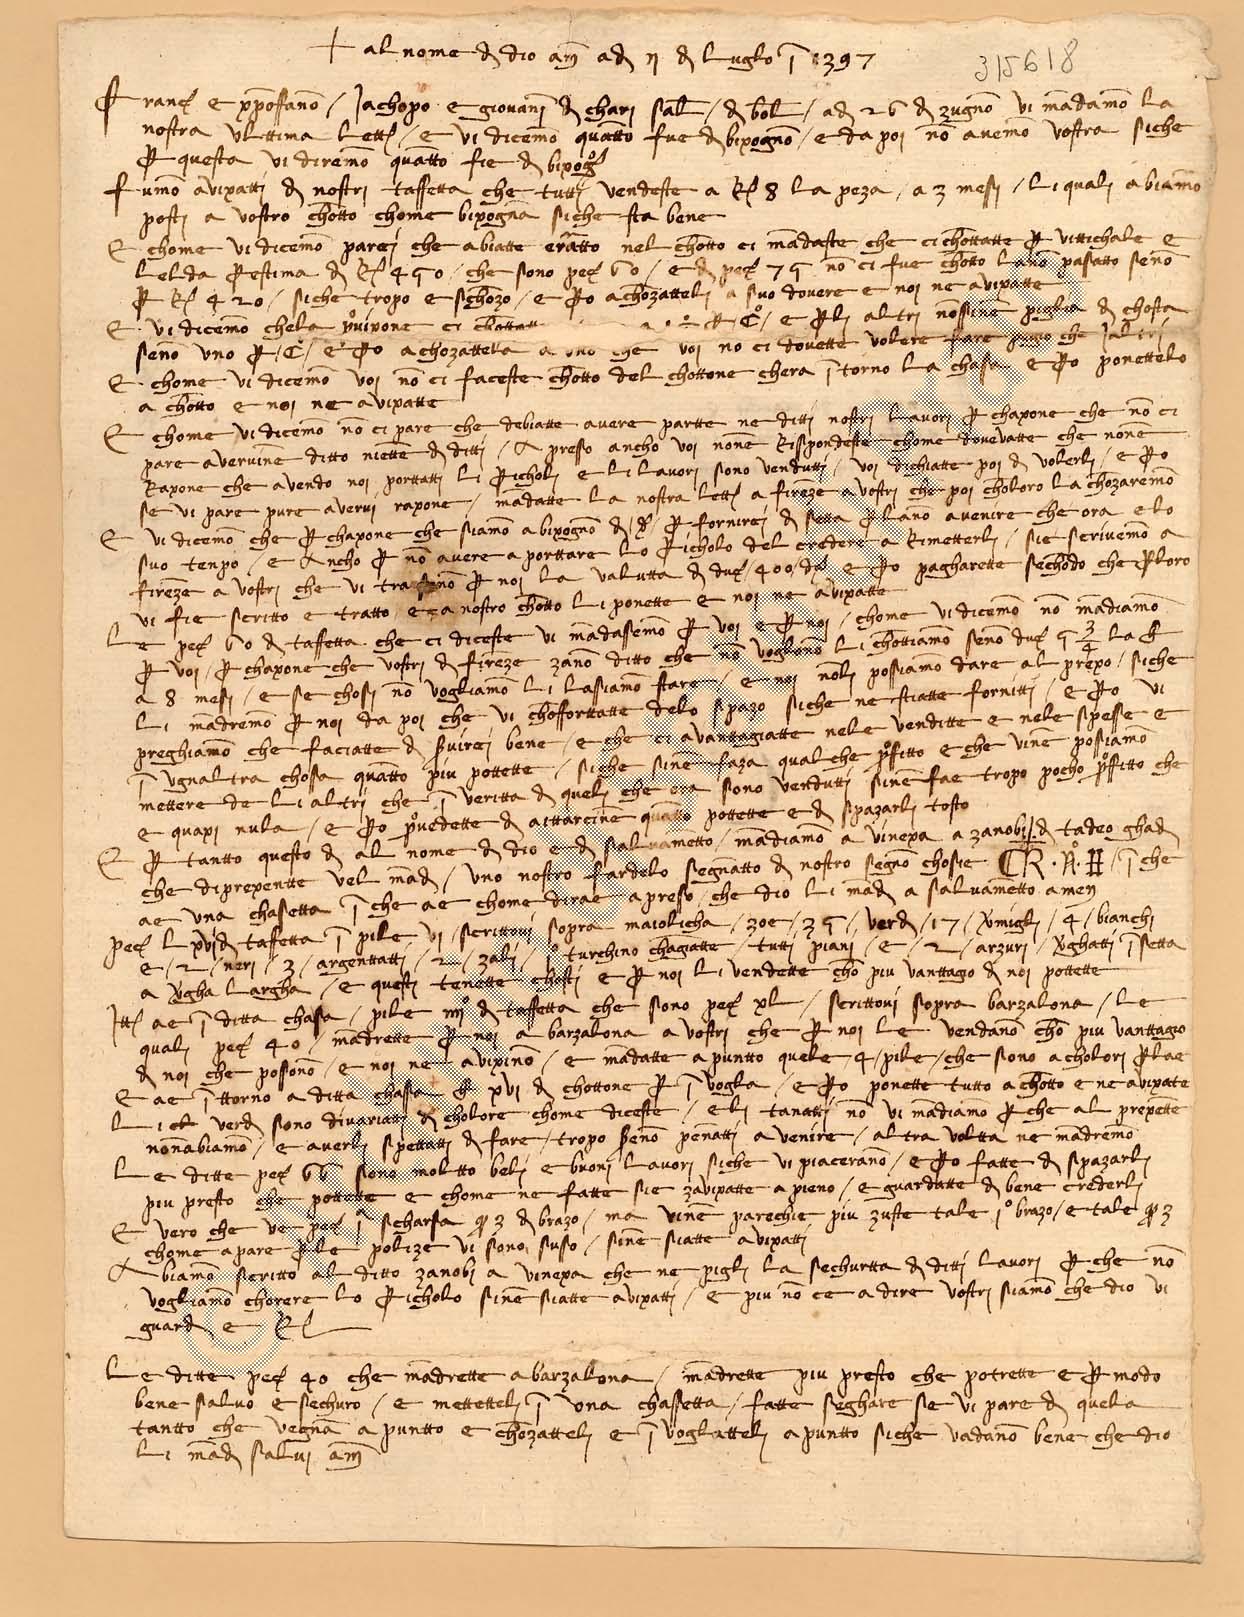 + al nome dĵ dio am̄ adĵ 11 dĵ Luglo ī 1397
315618
Franc̣ e xp̄offano / Jachopo e giovanj dĵ charj sal / dĵ bol / adĵ 26 dĵ zugno vi mādamo la
nostra ulttima lett̄ / e vi dicemo quātto fue dĵ bixogno / e da poi nō avemo vostra siche
ꝑ questa vi diremo quātto fie dĵ bixog̊
Fumo avixattj dĵ nostrj taffetta che tuttj vendeste a R̄ 8 la peza / a 3 mesj / li qualj abiamo
postj a vostro chōtto chome bixogna siche sta bene
E chome vi dicemo parcj che abiatte eratto nel chōtto ci mādaste che ci chōttatte ꝑ vittichale e
lelda ꝑ estima dĵ R̄ 490 / che sono pec̣ 60 / e dĵ pec̣ 79 nō ci fue chōtto lano passatto seno
ꝑ R̄ 420 / siche tropo e schōzo / e ꝑo achōzattelj a suo dovere e noi ne avixatte
E vi dicemo chela ꝓvixone ci chōttatte ꝑ C̊ / e ꝑ lj altrj nossine piglia dĵ chosta
seno uno ꝑ C̊ / e ꝑo achozattella a uno che voi no ci dovette volere fare che j altrj
E chome vi dicemo voi nō ci faceste chōtto del chottone chera ī torno la chasa e ꝑo ponettelo
a chōtto e noi ne avixatte
E chome vi dicemo nō ci pare che debiatte avere partte ne dittj nostrj lavorj ꝑ chaxone che nō ci
pare avervine ditto niette dĵ dittj / A presso ancho voi none rispondeste chome dovevatte che none
raxone che avendo noi porttattj li ꝑicholj e li lavorj sono vendutti / voi dichiatte poi dĵ volerlj / e ꝑo
se vi pare pure avervj raxone / mādatte la nostra lett̄ a firēze a vostrj che poi choloro la chōzaremo
E vi dicemo che ꝑ chaxone che siamo a bixogno dĵ ꝑ fornircj dĵ setta ꝑ lano avenire che ora e lo
suo tenpo / e Ancho ꝑ nō avere a porttare lo ꝑicholo del credere a rimetterlj / sie scrivemo a
firēze a vostrj che vi trano ꝑ noi la valutta dĵ duc̣ 400 e ꝑo pagharette sechōdo che ꝑ loro
vi fie scritto e tratto e a nostro chōtto li ponette e noi ne avixatte
Le pec̣ 60 dĵ taffetta che ci diceste vi mādassemo ꝑ voi e ꝑ noi / chome vi dicemo nō mādiamo
ꝑ voi / ꝑ chaxone che vostrj dĵ firēze zano ditto che nō vogliono li chōttiamo seno duc̣ 9 3/4 la
a 8 mesj / e se chosj nō vogliamo li lassiamo stare / e noi nōlj possiamo dare al prexo / siche
li mādremo ꝑ noi da poi che vi chōfforttatte delo spazo siche ne stiatte fornittj / e ꝑo vi
preghiamo che faciatte dĵ servircj bene / e che ci avanttagiatte nele venditte e nele spesse e
ī ugnaltra chossa quātto piu pottette / siche sine faza qualche ꝓfitto e che vine possiamo
mettere de li altrj che ī veritta dĵ quelj che ora sono vendutti sine fae tropo pocho ꝓfitto che
e quaxi nula / e ꝑo ꝓvedette dĵ aittarcine quātto pottette e dĵ spazarlj tosto
E ꝑ tantto questo dĵ al nome dĵ dio e dĵ salvametto / mādiamo a vinexa a zanobj dĵ tadeo ghadĵ
che diprexentte vel mādĵ / uno nostro fardelo segnatto dĵ nostro segno chosie CR · Å · H / ī che
ae una chassetta ī che ae chome dirae apresso / che dio li mādĵ a salvametto amen
pec̣ Lxvi dĵ taffetta ī pile vi scrittovj sopra maiolicha / zoe / 39 / verdĵ / 17 / vmiglj / 4 / bianchj
e / 2 / nerj / 3 / argenttattj / 2 / zalj / 1º turchino chagiatte / tuttj pianj / e / 2 / arzurj / vghattj ī setta
a vgha largha / e questj tenette chostj e ꝑ noi li vendette cho piu vanttago dĵ noi pottette
Itt̄ ae ī ditta chassa / pile iiijº dĵ taffetta che sono pec̣ xl / scrittovj sopra barzalona / le
qualj pec̣ 40 / mādrette ꝑ noi a barzalona a vostrj che ꝑ noi le vendano cho piu vanttago
dĵ noi che possono / e noi ne avixino / e mādatte apuntto quele 4 / pile / che sono acholorj ꝑlae
E ae ī ttorno a ditta chassa xvi dĵ chottone ꝑ ī vogla / e ꝑo ponette tutto a chōtto e ne avixate
Li verdĵ sono divariattj dĵ cholore chome diceste / e li tanattj nō vi mādiamo ꝑ che al prexētte
nonnabiamo / e averlj spettattj dĵ fare / tropo seno penattj a venire / altra voltta ne mādremo
Le ditte pec̣ 66 seno moltto belj e buonj lavorj siche vi piacerano / e ꝑo fatte dĵ spazarlj
piu presto che pottette e chome ne fatte sie zavixatte a pieno / e guardatte dĵ bene crederlj
E vero che ve pec̣ 1ª scharsa ꝑ 3 dĵ brazo / ma vine parechie piu zuste tale 1º brazo / e tale ꝑ 3
chome apare ꝑ le polize vi sono suso / sine siatte avixattj
Abiamo scritto al ditto zanobj a vinexa che ne piglj la sechurtta dĵ dittj lavorj ꝑ che nō
vogliamo chorere lo ꝑicholo sine siatte avixattj / e piu nō ce a dire vostrj siamo che dio vi
guardĵ e R̄
Le ditte pec̣ 40 che mādrette a barzalona / mādrette piu presto che potrette e ꝑ modo
bene salvo e sechuro / e mettettelj ī una chassetta / fatte seghare se vi pare dĵ quela
tantto che vegna a puntto e chōzattelj e ī voglattelj a puntto siche vadano bene che dio
li mādĵ salvj am̄